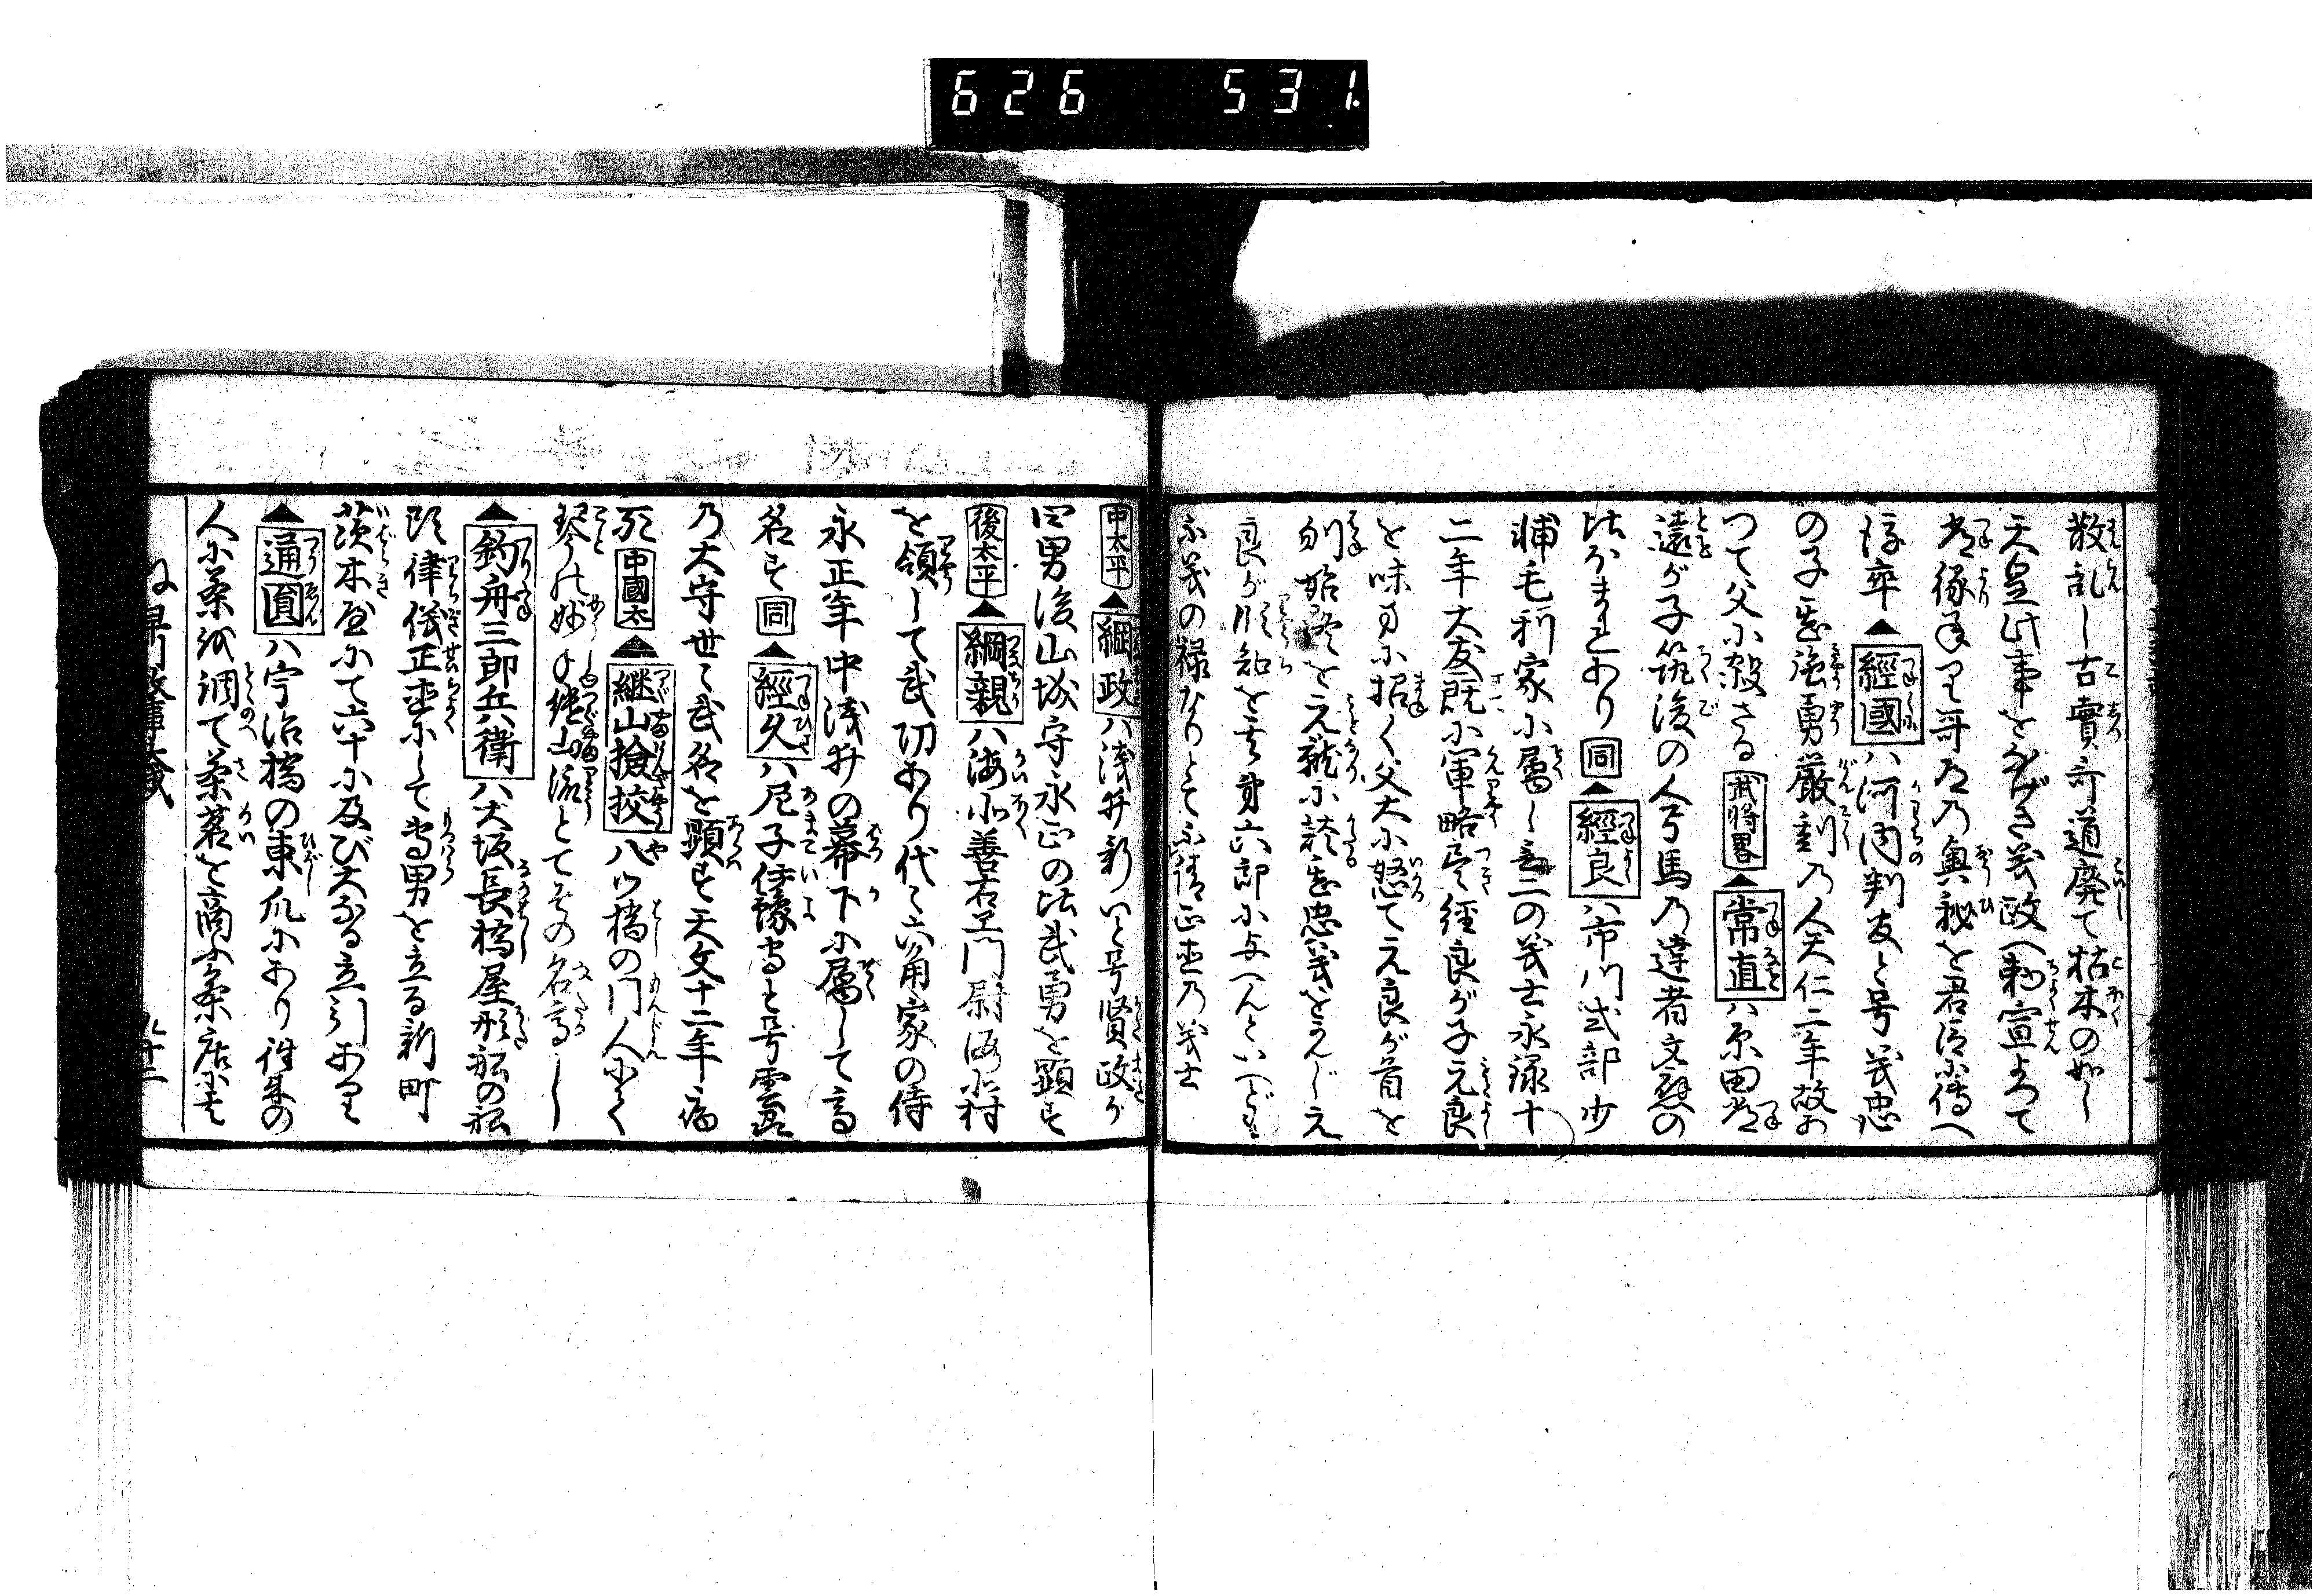 626 531
散乱し古實哥道廃て枯木の如し
天皇此事をなげき義政へ勅宣よつて
常縁に哥道の奥秘を君臣に傳へ
後卒▲經國ハ河内判友と号義忠
の子也強勇嚴刻乃人天仁二年故あ
つて父に殺さる武将畧▲常直ハ原田常
遠が子筑後の人弓馬乃達者文慶の
比ほまれあり同▲經良ハ市川式部少
輔毛利家に属し無二の義士永禄十
二年大友既に軍略を經良が子元良
を味方に招く父大に怒て元良が首を
刎始終を元就に就忠義をかんじ元
良が所知を舎弟六郎に与へんといへども
不義の禄なりとて不請正直乃義士
中太平▲綱政ハ浅井新八と号賢政が
四男後山城守永正の比武勇を顕す
後太平▲綱親ハ海北善右エ門尉海北村
を領して武功あり代々六角家の侍
永正年中浅井の幕下に属して高
名す同▲經久ハ尼子伊豫守と号雲
乃大守世に武名を顕す天文十二年病
死中國太▲継山撿挍八ツ橋の門人にて
琴の妙手継山流とてその名高し
▲釣舟三郎兵衛ハ大坂長橋屋形舩の舩
頭律儀正直にして男を立る新町
茨木屋にて六十に及び大なる立引あり
▲通圓ハ宇治橋の東爪にあり往来の
人に茶を調て茶茗を商ふ茶店にも
九十二